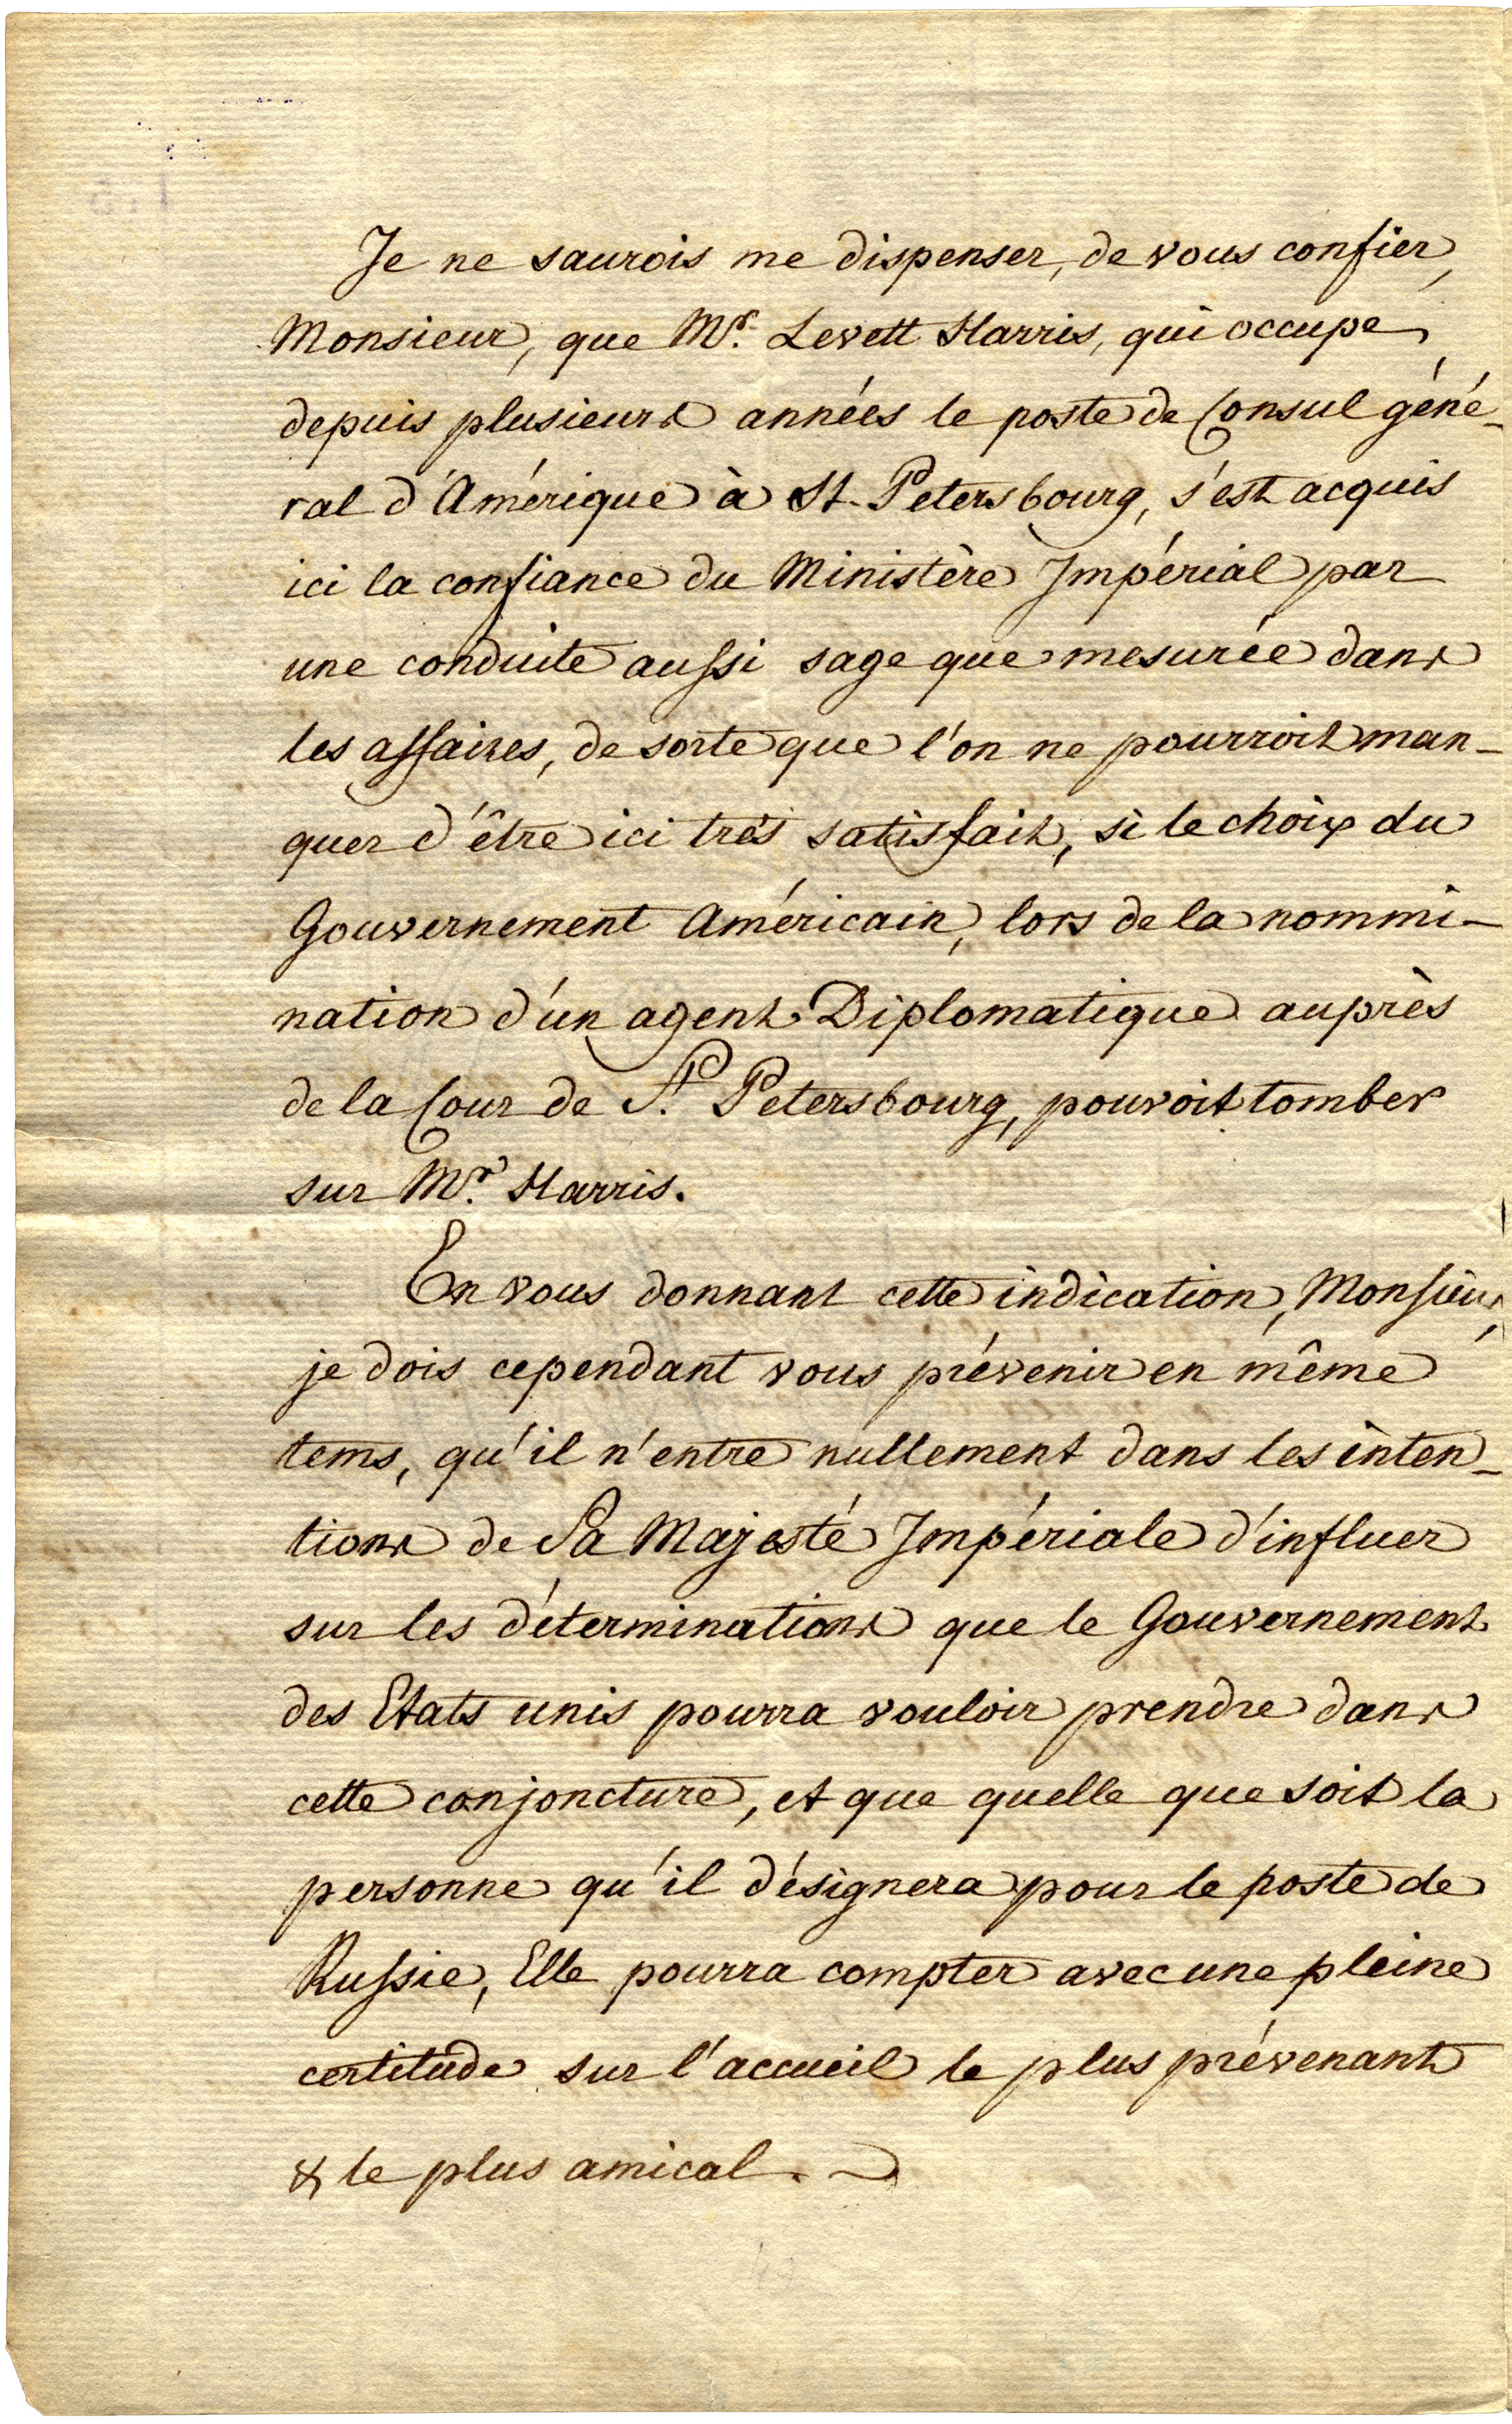 Je ne saurois me dispenser, de vous confier,
Monsieur, que Mr. Levett Harris, qui occupe
depuis plusieurs années le poste de Consul géné-
ral d'Amérique à St. Petersbourg, s'est acquis
ici la confiance du Ministère Impérial par
une conduite aussi sage que mesurée dans
les affaires, de sorte que l'on ne pourroit man-
quer d'être ici très satisfait, si le choix du
Gouvernement Américain, lors de la nommi-
nation d'un agent Diplomatique auprès
de la Cour de St. Petersbourg, pouvoit tomber
sur Mr. Harris.
En vous donnant cette indication, Monsieur,
je dois cependant vous prévenir en même
tems, qu'il n'entre nullement dans les inten-
tions de Sa Majesté Impériale d'influer
sur les déterminations que le Gouvernement
des Etats unis pourra vouloir prendre dans
cette conjoncture, et que quelle que soit la
personne qu'il désignera pour le poste de
Russie, Elle pourra compter avec une pleine
certitude sur l'accueil le plus prévenant
& le plus amical.